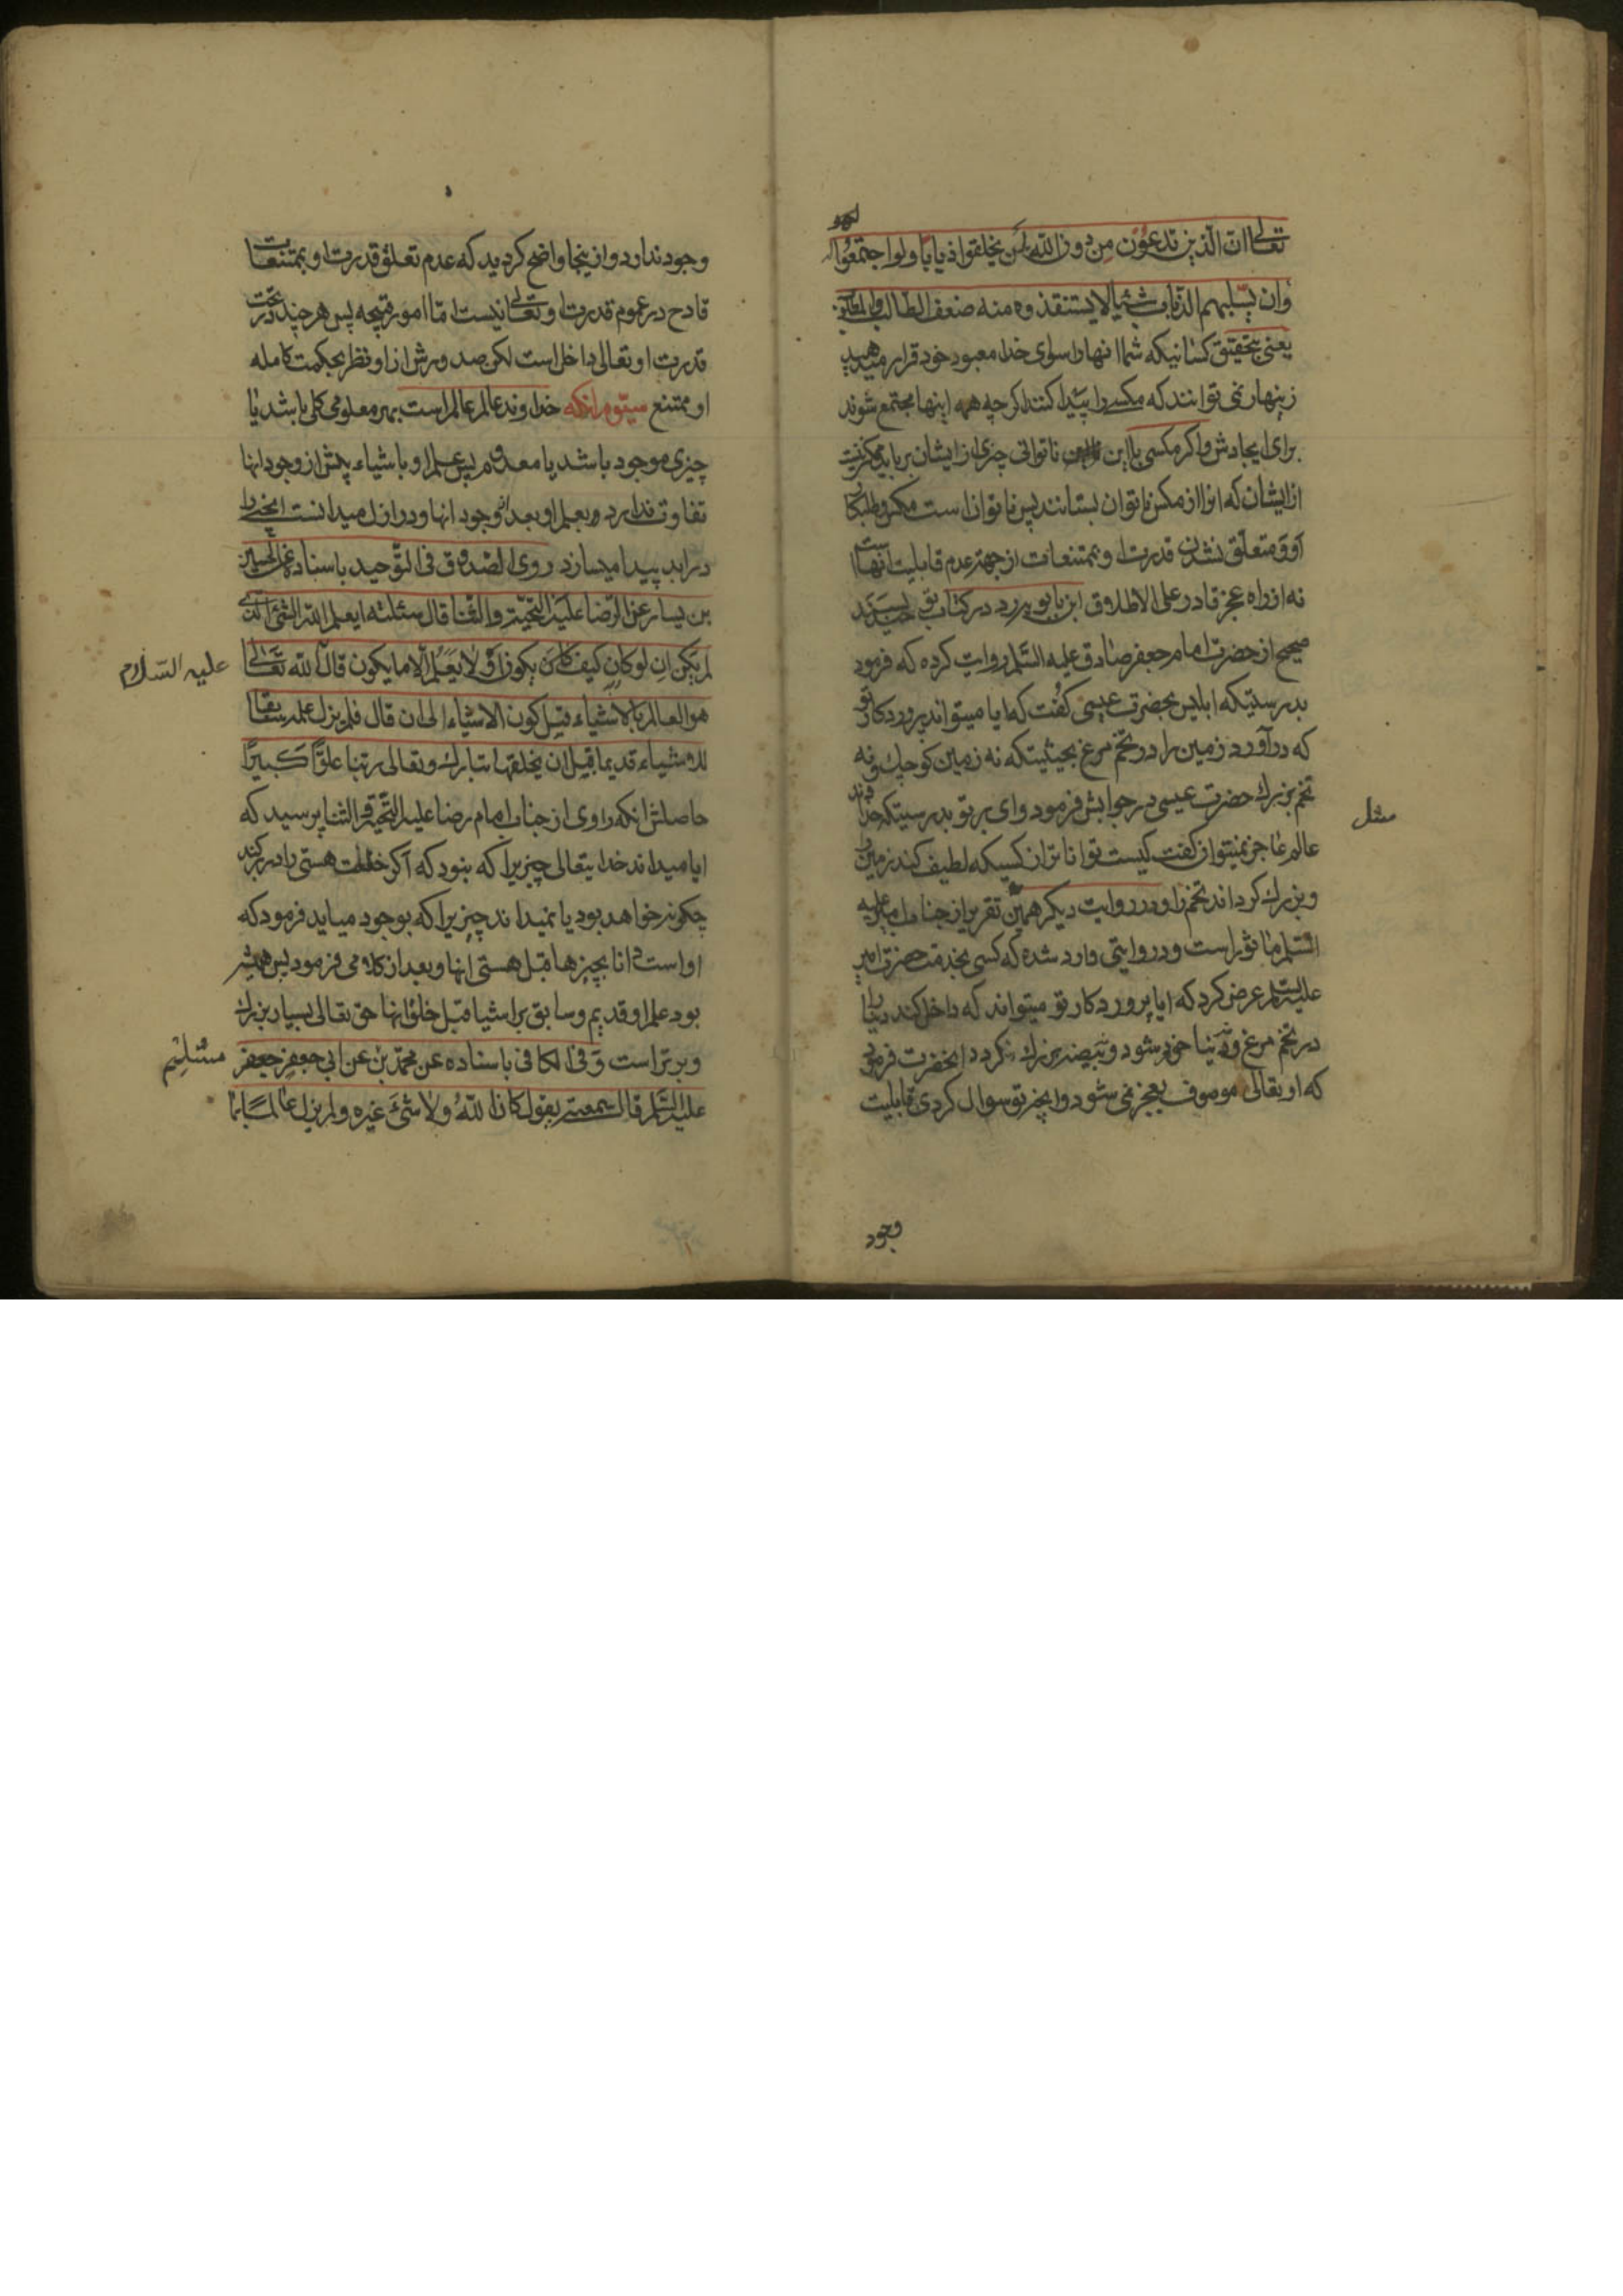 تعالی ان الذین تدعون من دون الله لن یخلقوا ذبابا ولو اجتمعوا له
وان یسلبهم الذباب شیئا لا یستنقذوه منه ضعف الطالب والمطلوب
یعنی بتحقیق کسانیکه شما انها را سوای خدا معبود خود قرار میدهید
زینهار نمی توانند که مکسی را پیدا کنند اکر چه همه اینها مجتمع شوند
برای ایجادش واکر مکسی با این ناتوانی چیزی از ایشان برباید ممکن نیست
از ایشان که انرا از مکس ناتوان بستانند پس ناتوان است مکس
او ومتعلق نشدن قدرت او بممتنعات از جهة عدم قابلیت انهاست
نه از راه عجز قادر علی الاطلاق ابن بابویه در کتاب توحید بسند
صحیح از حضرت امام جعفر صادق علیه السلم روایت کرده که فرمود
بدرستیکه ابلیس بحضرت عیسی کفت که ایا میتواند پروردکار تو
که درآورد زمین را در تخم مرغ بحیثیتکه نه زمین کوچك ونه
تخم بزرك حضرت عیسی در جوابش فرمود وای بر تو بدرستیکه خداوند
مثل
عالم عاجز نمیتوان کفت کیست تواناتر از کسیکه لطیف کند زمین را
وبزرك کرداند تخم را ودر روایت دیکر همین تقریر از جناب امیر علیه
السلم ماثور است ودر روایتی وارد شده که کسی بخدمت حضرت امیر
علیه السلم عرض کرد که ایا پروردکار تو میتواند که داخل کند دنیا را
در تخم مرغ ونه دنیا خورد شود ونه بیضه بزرك کردد انحضرت فرمود
که او تعالی موصوف بعجز نمی شود وانچه تو سوال کردی قابلیت
وجود
وجود ندارد واز ینجا واضح کردید که عدم تعلق قدرت او بممتنعات
قادح در عموم قدرت او تعالی نیست اما امور قبیحه پس هر چند در تحت
قدرت او تعالی داخل است لکن صدورش از او نظر بحکمت کامله
او ممتنع سیّوم انکه خداوند عالم عالم است بهر معلومی کلی باشد یا
چیزی موجود باشد یا معدوم پس علم او باشیاء پیش از وجود انها
تفاوت ندارد بعلم او بعد وجود انها ودر ازل میدانست انچه را
در ابد پیدا میسازد روی الصدوق فی التوحید باسناده عن الحسین
بن یسار عن الرضا علیه التحیة والثنا قال سئلته ایعلم الله الشئ الذی
لم یکن ان لو کان کیف کان یکون او لا یعلم الا ما یکون قال الله تعالی
علیه السّلام
هو العالم بالاشیاء قبل کون الاشیاء الی ان قال فلم یزل علمه سابقا
للاشیاء قدیما قبل ان یخلقها تبارك وتعالی ربنا علوّا کبیرًا
حاصلش انکه راوی از جناب امام رضا علیه التحیة والثنا پرسید که
ایا میداند خدایتعالی چیزیرا که نبود که آکر خلعت هستی را در بر کند
چکونه خواهد بود یا نمیداند چیزیرا که بوجود میاید فرمود که
او است دانا بچیزها قبل هستی انها وبعد از کلامی فرمود پس همیشه
بود علم او قدیم وسابق بر اشیا قبل خلق انها حق تعالی بسیار بزرك
وبرتر است وفی الکافی باسناده عن محمد بن عن ابی جعفر جعفر
مسلم
علیه السّلم قال سمعته یقول کان الله ولا شئ غیره ولم یزل عالما بما